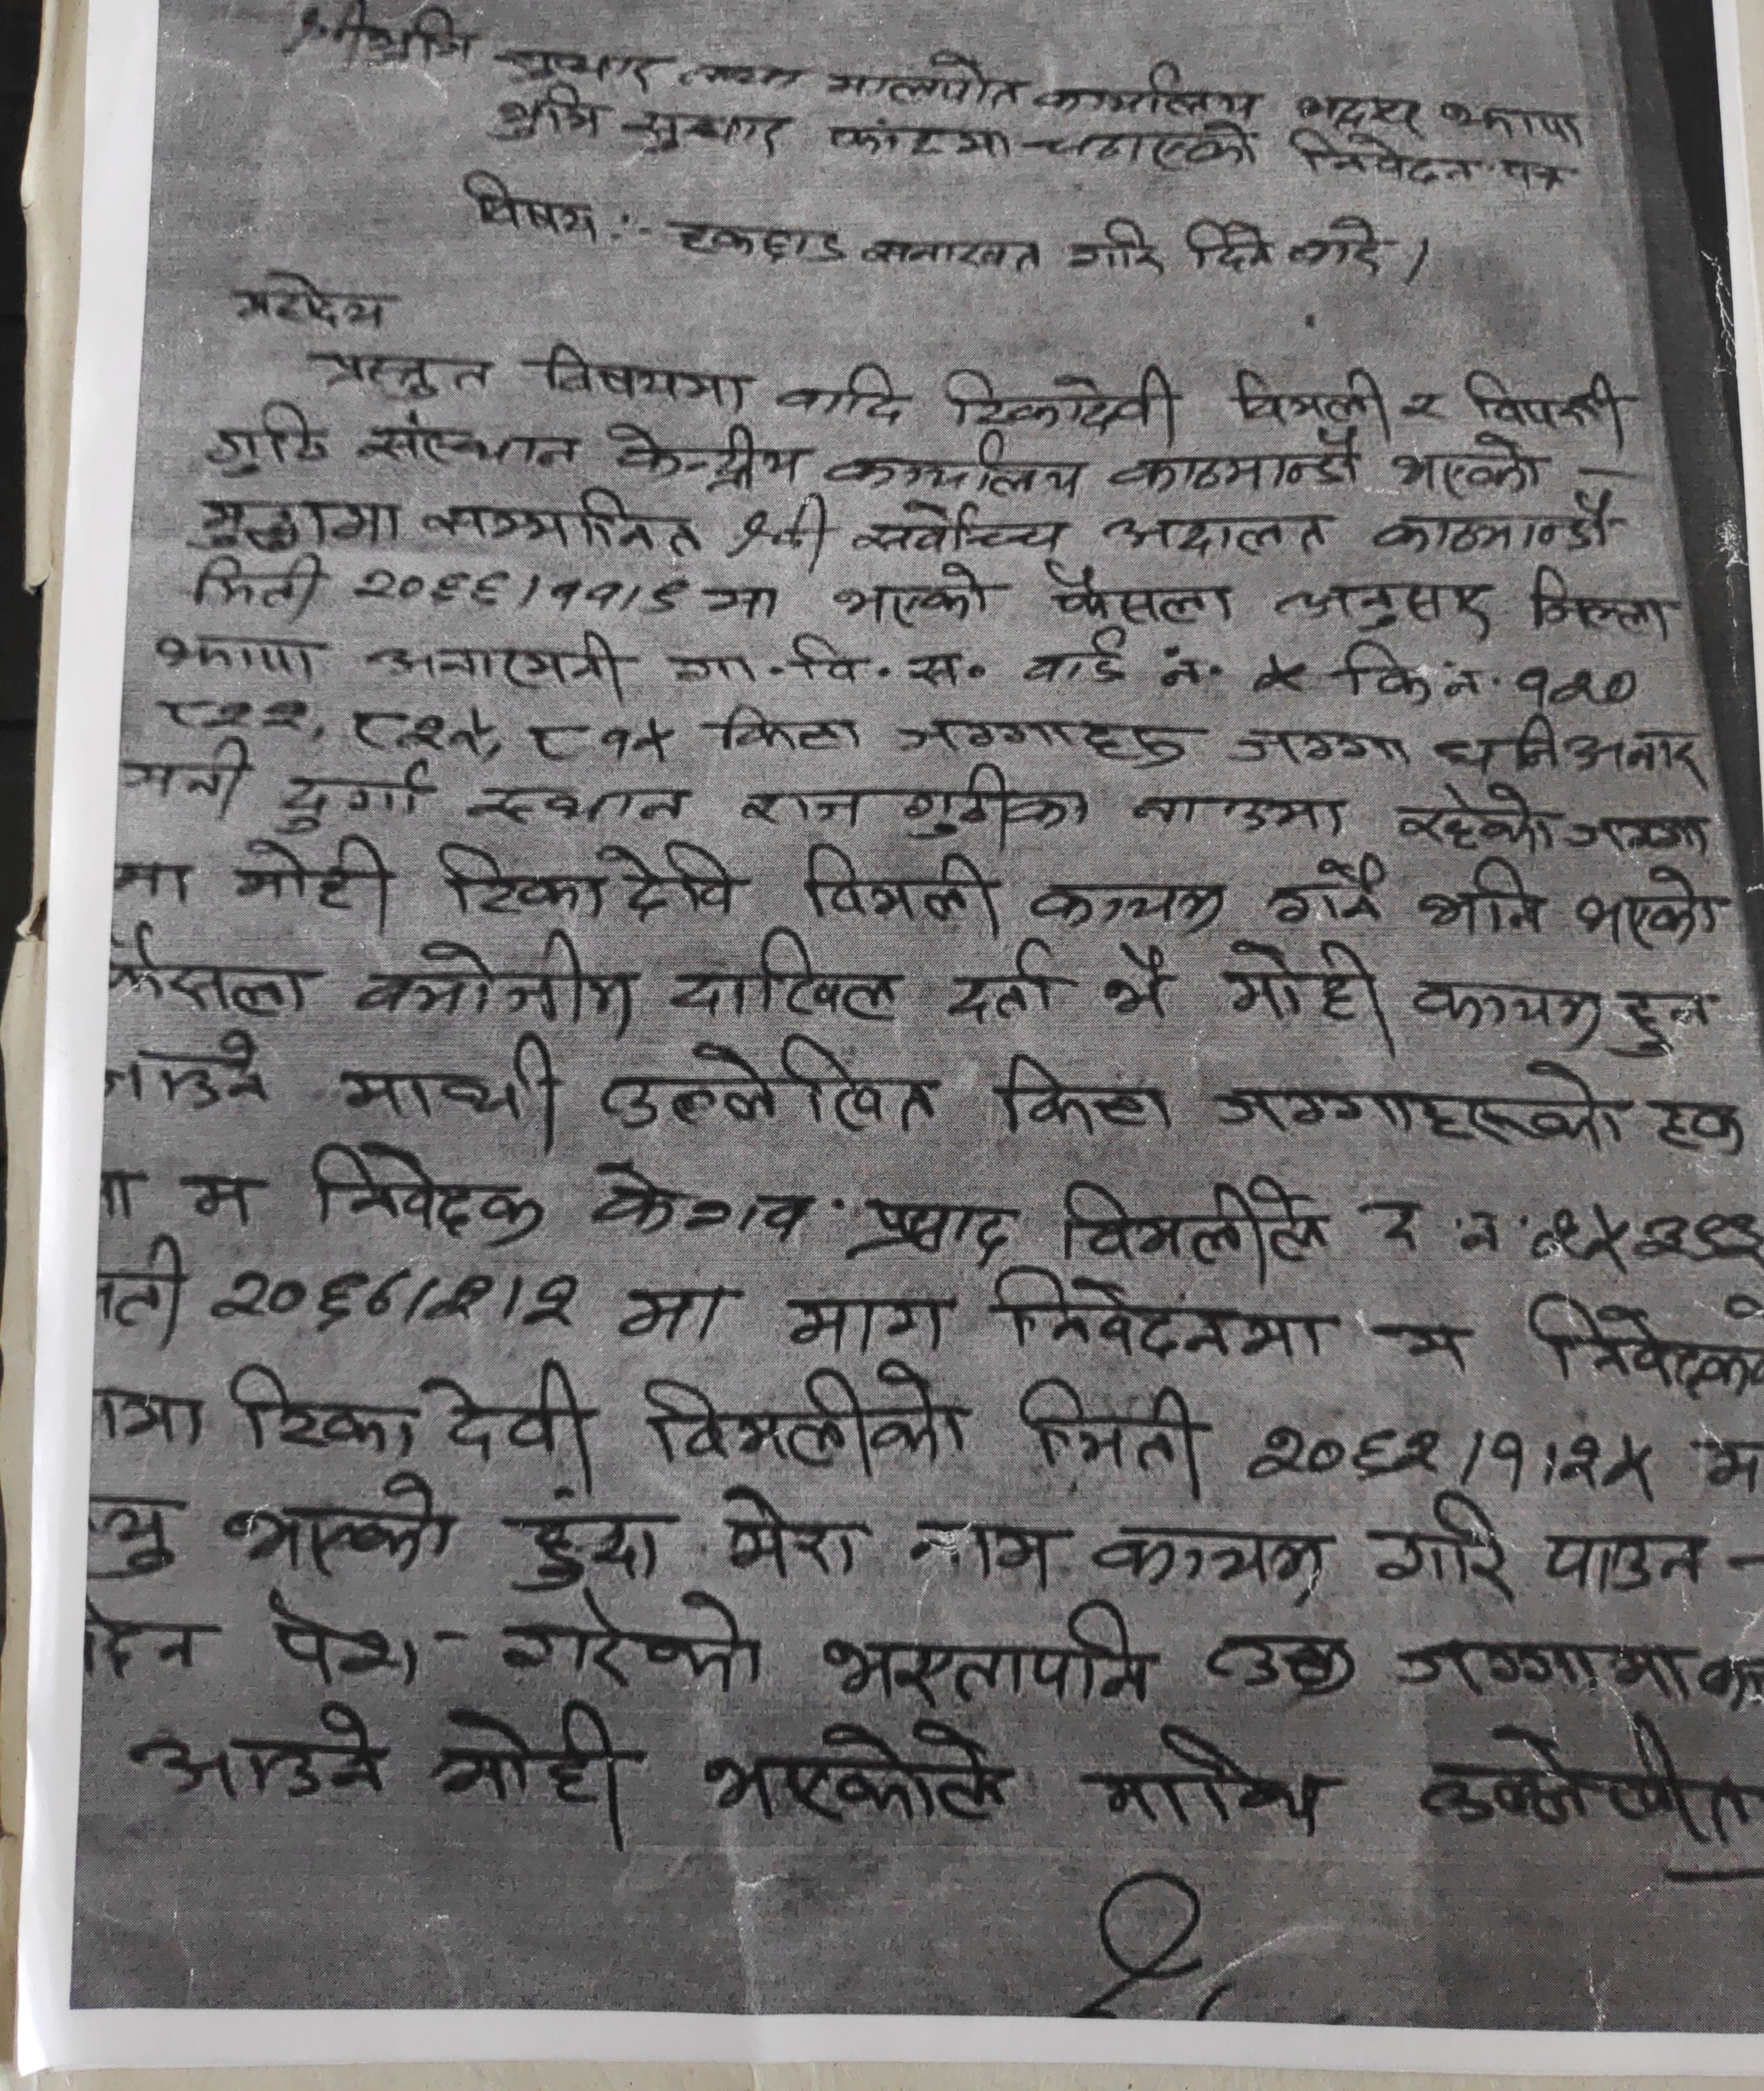 श्री भुमि सुधार तथा मालपोत कार्यालय भद्रपुर झापा
भुमि सुधार फांटमा चढाएको निवेदन पत्र
विषय :- हकछाड सनाखत गरि दिने बारे ।
महोदय
प्रस्तुत विषयमा वादि रिकादेवी विमली र विपक्षी
गुठि संस्थान केन्द्रीय कार्यालय काठमान्डौ भएको –
मुद्धामा सम्मानित श्री सर्वोच्च अदालत काठमान्डौ
मिती २०६६/११/६ मा भएको फैसला अनुसार जिल्ला
झापा अनारमनी गा.वि.स. वार्ड नं. ५ कि.नं.
८१५ कित्ता जग्गाहरु जग्गा धनि अनार
मनी दुर्गा स्थान राज गुठीका नाउमा रहेको जग्गा
मा मोही रिका देवि विमली कायम गर्ने भनि भएको
फैसला बमोजीम दाखिल दर्ता भै मोही कायम हुन
माथी उल्लेखित कित्ता जग्गाहरुको हक
मा म निवेदक केशव प्रसाद विमलीले द.नं.
मा माग निवेदनमा म निवेदकको
रिका देवी विमलीको मिती २०६२/१/२५ म
भएको हुंदा मेरा नाम कायम गरि पाउन –
पेश गरेको भएतापनि उक्त जग्गामा
आउने मोही भएकोले माथि उल्लेखीत